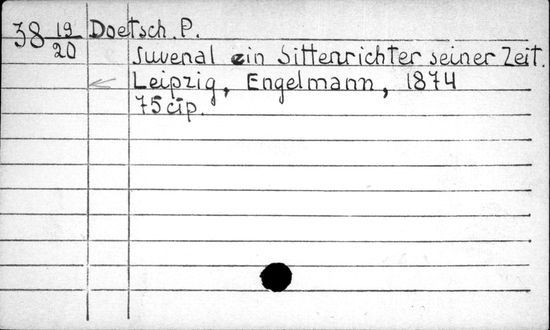 38 19/20 Doetsch. P.
Juvenal ein Sittenrichter seiner Zeit.
Leipzig, Engelmann, 1874
75 cıp.